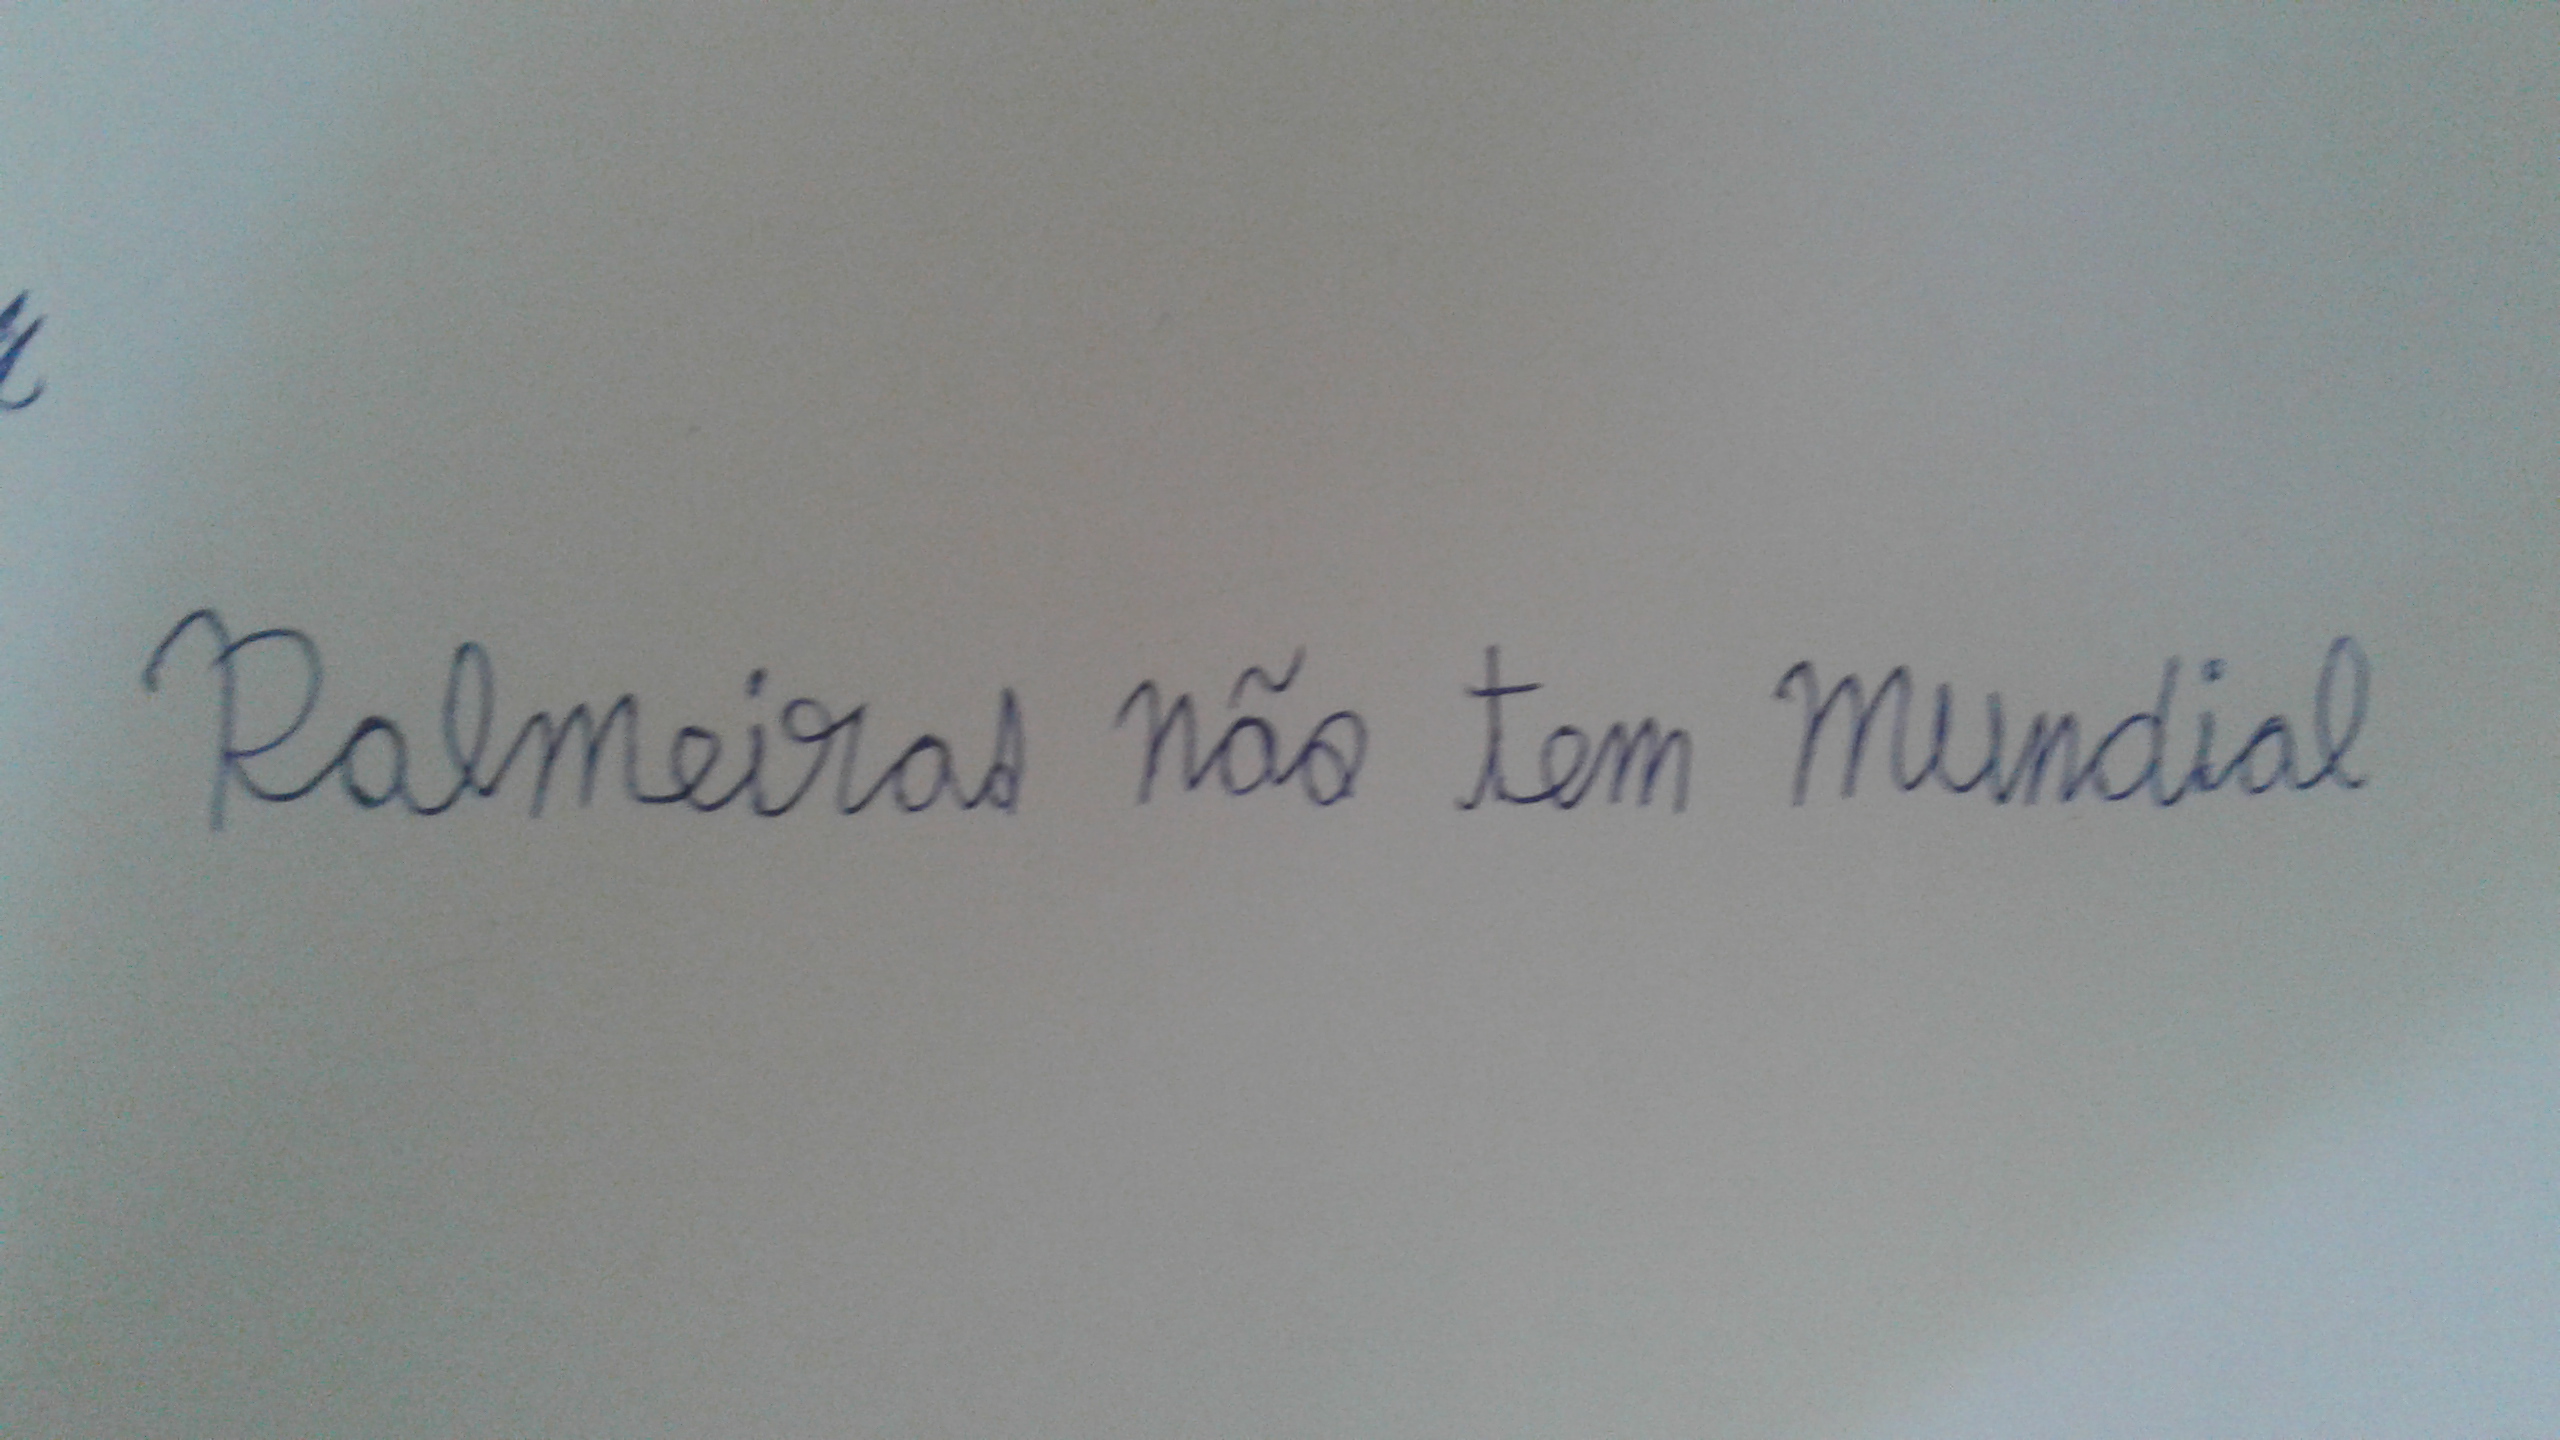 Palmeiras não tem mundial